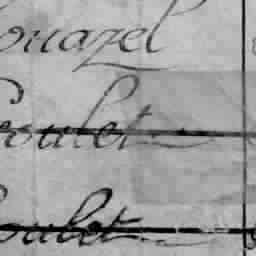 ouazel
Poulet
Poulet